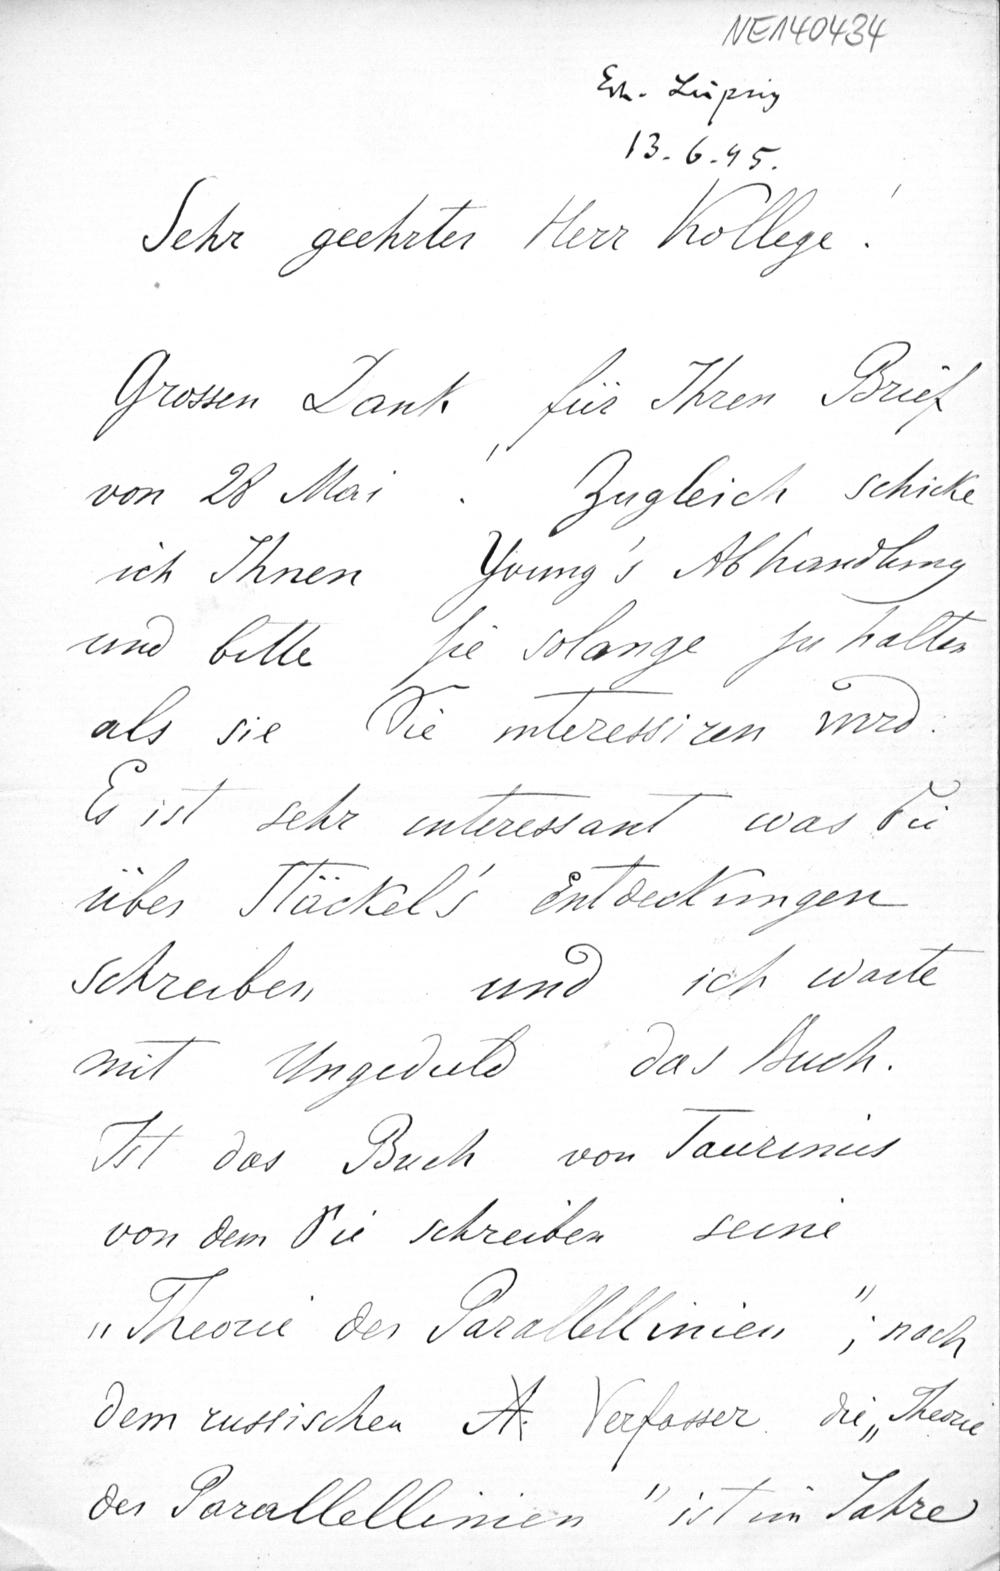 NE140434
Erh. Leipzig
13.6.95.
Sehr geehrter Herr Kollege!
Grossen Dank für Ihren Brief
von 28 Mai! Zugleich schicke
ich Ihnen Young's Abhandlung
und bitte sie solange zu halten
als sie Sie interessiren wird.
Es ist sehr interessant was Sie
über Stäckel's Entdeckungen
schreiben und ich warte
mit Ungeduld das Buch.
Ist das Buch von Taurinus
von dem Sie schreiben seine
„Theorie der Parallellinien"; nach
dem russischen A. Verfasser die „Theorie
der Parallellinien" ist im Jahre